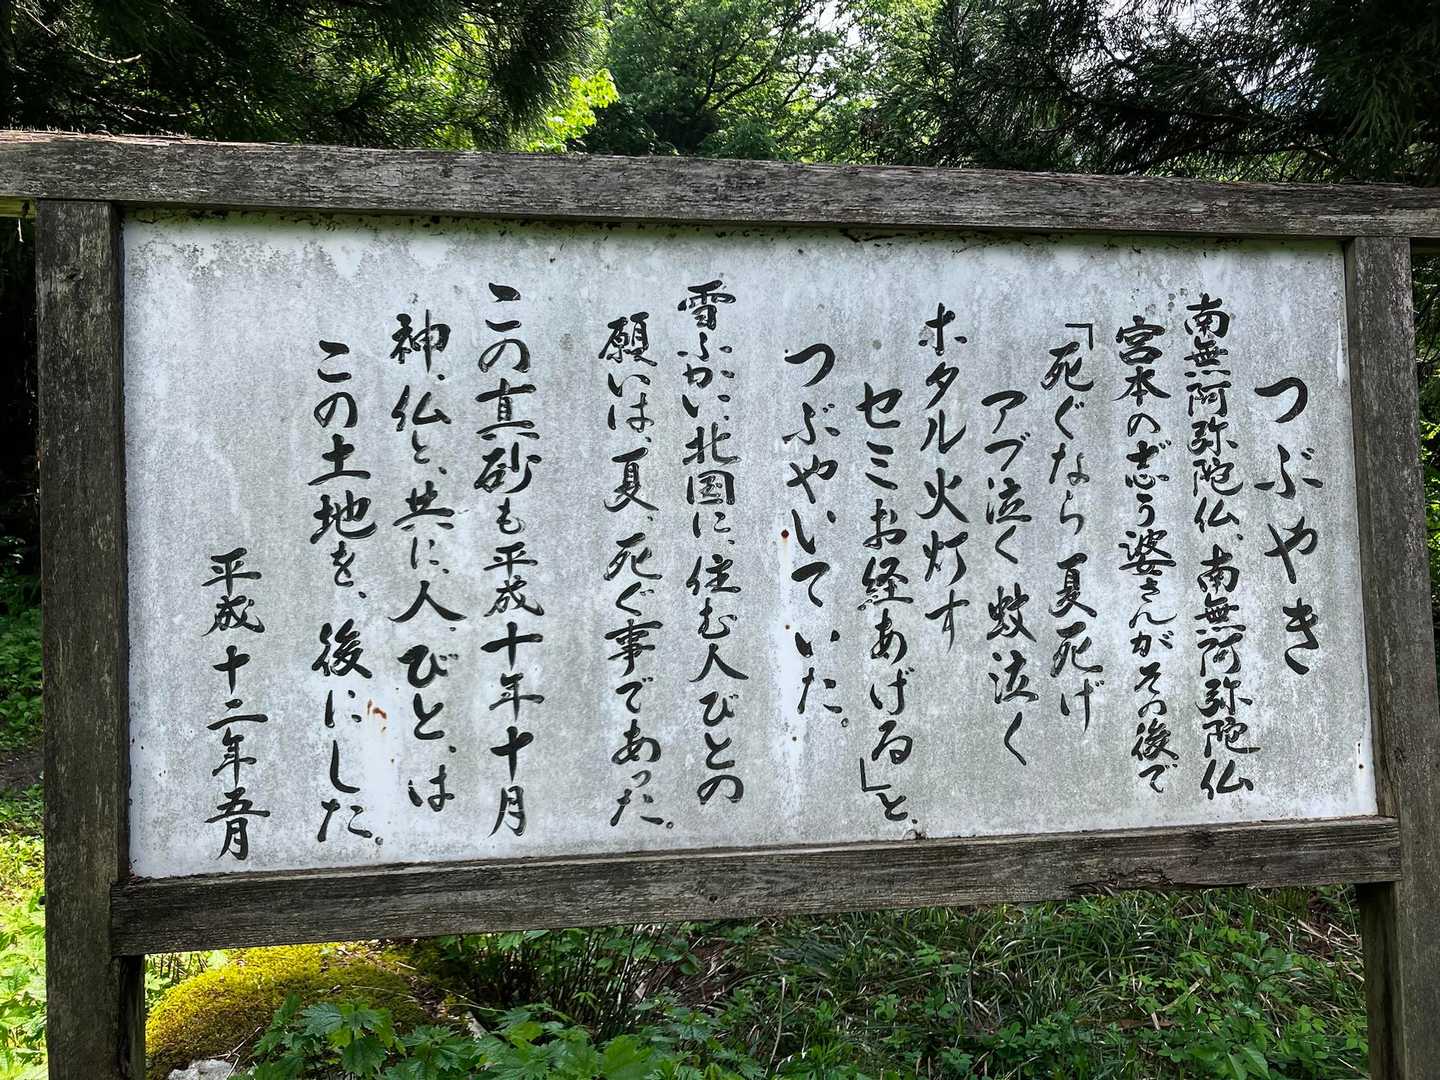 つぶやき
南無阿弥陀仏、南無阿弥陀仏
宮本のぎう婆さんがその後で
「死ぐなら 夏死げ
アブ泣く 蚊泣く
ホタル火灯す
セミお経あげる」と、
つぶやいていた。
雪ふかい、北国に、住む人びとの
願いは、夏、死ぐ事であった。
この真砂も平成十年十月
神、仏と、共に、人、びと、は
この土地を、後にした。
平成十二年五月